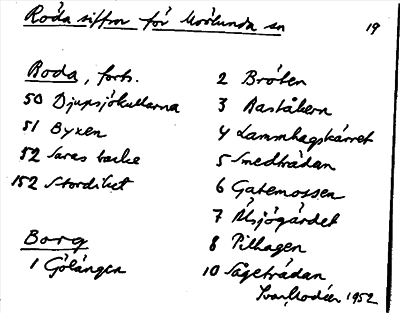 Röda siffror för Mörlunda sn 19
Roda, forts.
50 Djupsjökullarna
51 Byxen
52 Saras backe
152 Stordiket
Borg
1 Gölängen
2 Bröten
3 Raståkern
4 Lammhagskärret
5 Smedtrådan
6 Gatemossen
7 Älsjögärdet
8 Pilhagen
10 Sågetrådan
1952